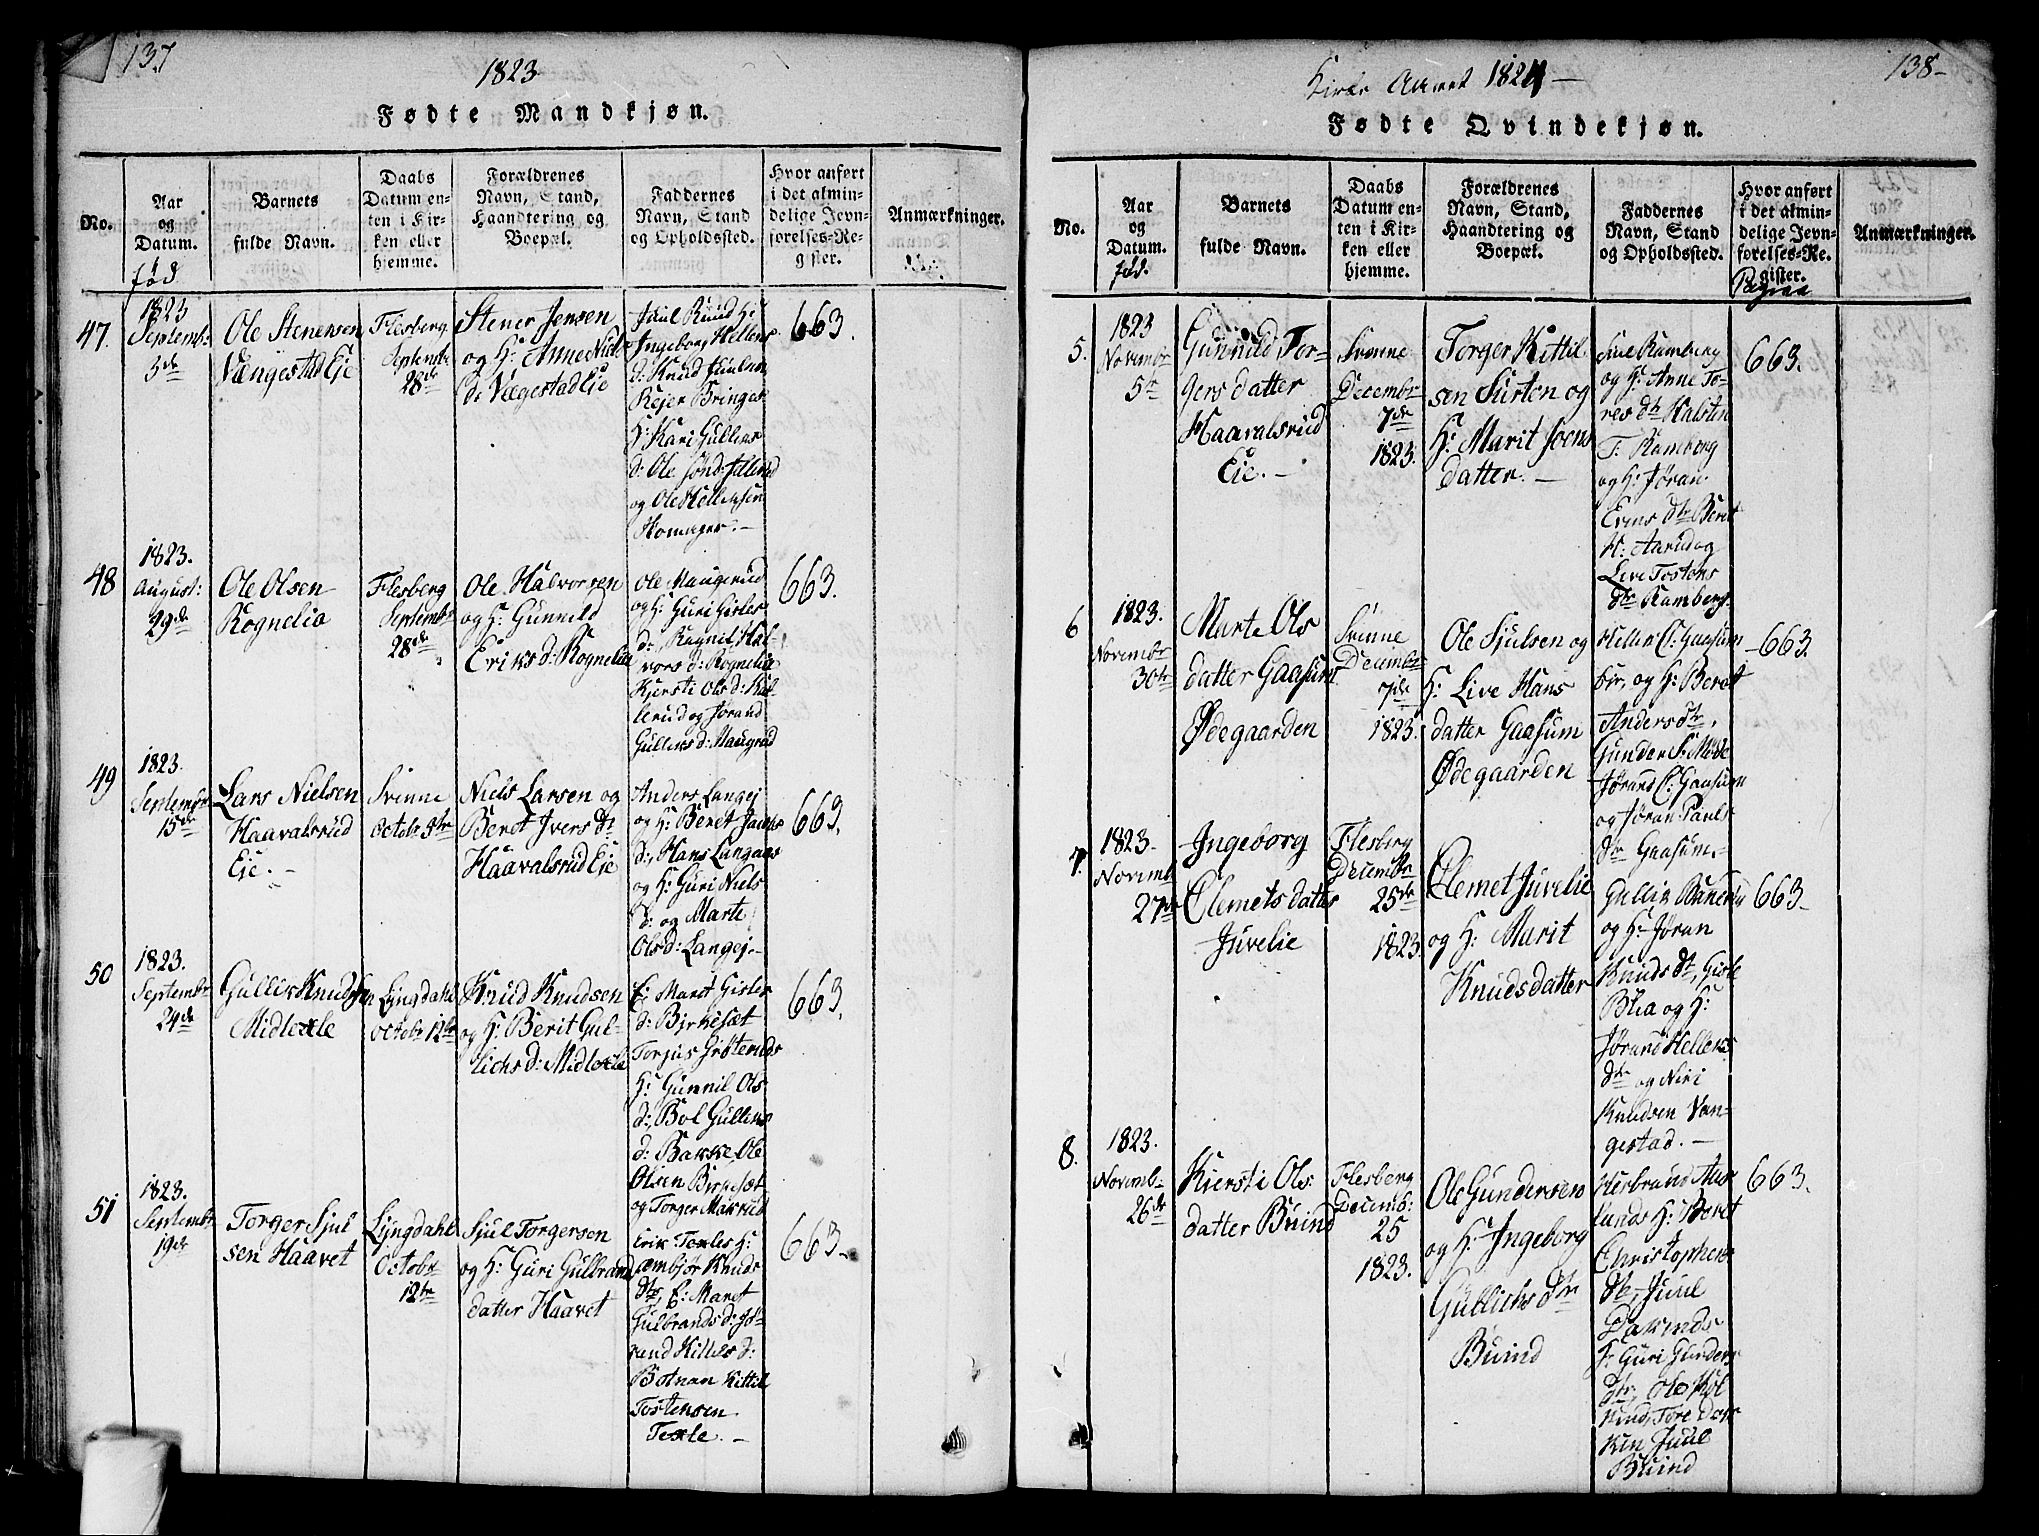 137
1823
Fødte Mandkjøn.
No.
Aar
og
Datum.
fød
Barnets
fulde Navn.
Daabs
Datum en-
ten i Kir-
ken eller
hjemme.
Forældrenes
Navn, Stand,
Haandtering og
Boepæl.
Faddernes
Navn, Stand
og Opholdssted.
Hvor anført
i det almin-
delige Jevn-
førelses-Re-
gister.
Anmærkninger.
47.
1823
Septembr:
5de
Ole Stenersen
Vængestad Eje
Flesberg
Septembr
28de
Stener Jensen
og H: Anne Niels
d: Vægestad Eje
Juul Ruud H:
Ingeborg Hellens
d: Knud Juulsen
Rejer Bringas
H: Kari Gullens
d: Ole
og Ole Hellensen
663.
48
1823.
August:
29de
Ole Olsen
Rognelia
Flesberg
Septembr
28de
Ole Halvorsen
og H: Gunnild
Eriks d: Rognelia
Ole Maugerud
og H: Guri Gisles
d:, Ragnil Hal-
vors d: Rognelie
Kjersti Ols d: Kol-
lerud og Jørand
Gulleks d: Maugrud
663.
49
1823.
Septembr
15de
Lars Nielsen
Haavalsrud
Eje. -
Svenne
Octobr 5te
Niels Larsen og
Beret Ivers dt
Haavalsrud Eje
Anders Langej
og H: Beret
d:, Hans Langaas
og H: Guri Niels
d: og Marte
Ols d: Langej.-
663.
50
1823.
Septembr
24de
Gullik Knudsen
Midtexle
Lyngdahl
Octobr 12te
Knud Knudsen
og H: Berit Gul-
lichs d: Midtexle
E: Maret Gisles
d: Bjrkesæt
Torjus Grøterud
H: Gunnil Ols
d:, Bol Gulleks
d: Bakke, Ole
Olsen Birkesæt
og Torger Makrud
663.
51
1823.
Septembr
19de
Torger Sjul
sen Haavet
Lyngdahl
Octobr
12te
Sjul Torgersen
og H: Guri Gulbrand
datter Haavet
Erik Texles H:
Æmbjør Knuds
dtr, E: Maret
Gulbrands d: Jø-
rand Killes d:
Botnan Kittil
Tostensen
Texle. -
663.
138-
Kirke Aaret 1824 -
Fødte Qvindekjøn.
No.
Aar
og
Datum.
fød.
Barnets
fulde Navn.
Daabs
Datum en-
ten i Kir-
ken eller
hjemme.
Forældrenes
Navn, Stand,
Haandtering og
Boepæl.
Faddernes
Navn, Stand
og Opholdssted.
Hvor anført
i det almin-
delige Jevn-
førelses-Re-
gister.
Pagina
Anmærkninger.
5.
1823
Novembr
5te
Gunnild Tor-
gers datter
Haavalsrud
Eie. -
Svenne
Decembr
7de
1823.
Torger Kittil
sen Surten og
H: Marit Joens
datter. -
Juel Ramberg
og H: Anne To-
res dtr Halsten
T: Ramberg
og H: Jøran
Evens dtr Beret
H: Aarud og
Live Tostens
dtr Ramberg.
663.
6
1823.
Novembr
30te
Marte Ols
datter Gaasum
Ødegaarden
Svenne
Decembr
7de
1823.
Ole Sjulsen og
H: Live Hans
datter Gaasum
Ødegaarden
Hellik C: Gaasum
bir, og H: Beret
Anders dtr,
Gunder S: Moe
Jørand C: Gaasum
og Jøran Pauls
dtr Gaasum.-
663.
7.
1823.
Novemb
27de
Ingeborg
Clemets datter
Juvelie
Flesberg
Decembr
25te
1823.
Clemet Juvelie
og H: Marit
Knudsdatter
Gullik
og H: Jøran
Knuds dt, Gisle
Blia og H:
Jørand Helleks
dtr og Niri
Knudsen Væn-
gestad. -
663.
8.
1823.
Novemb-
26de
Kjersti Ols:
datter Buind
Flesberg
Decemb:
25
1823.
Ole Gundersen
og H: Ingeborg
Gullichs dtr
Buind
Herbrand Aas-
lunds H: Beret
Christophers
dtr, Juul
H: Guri Gunders
dtr, Ole
Tore
Juul
Buind
663.